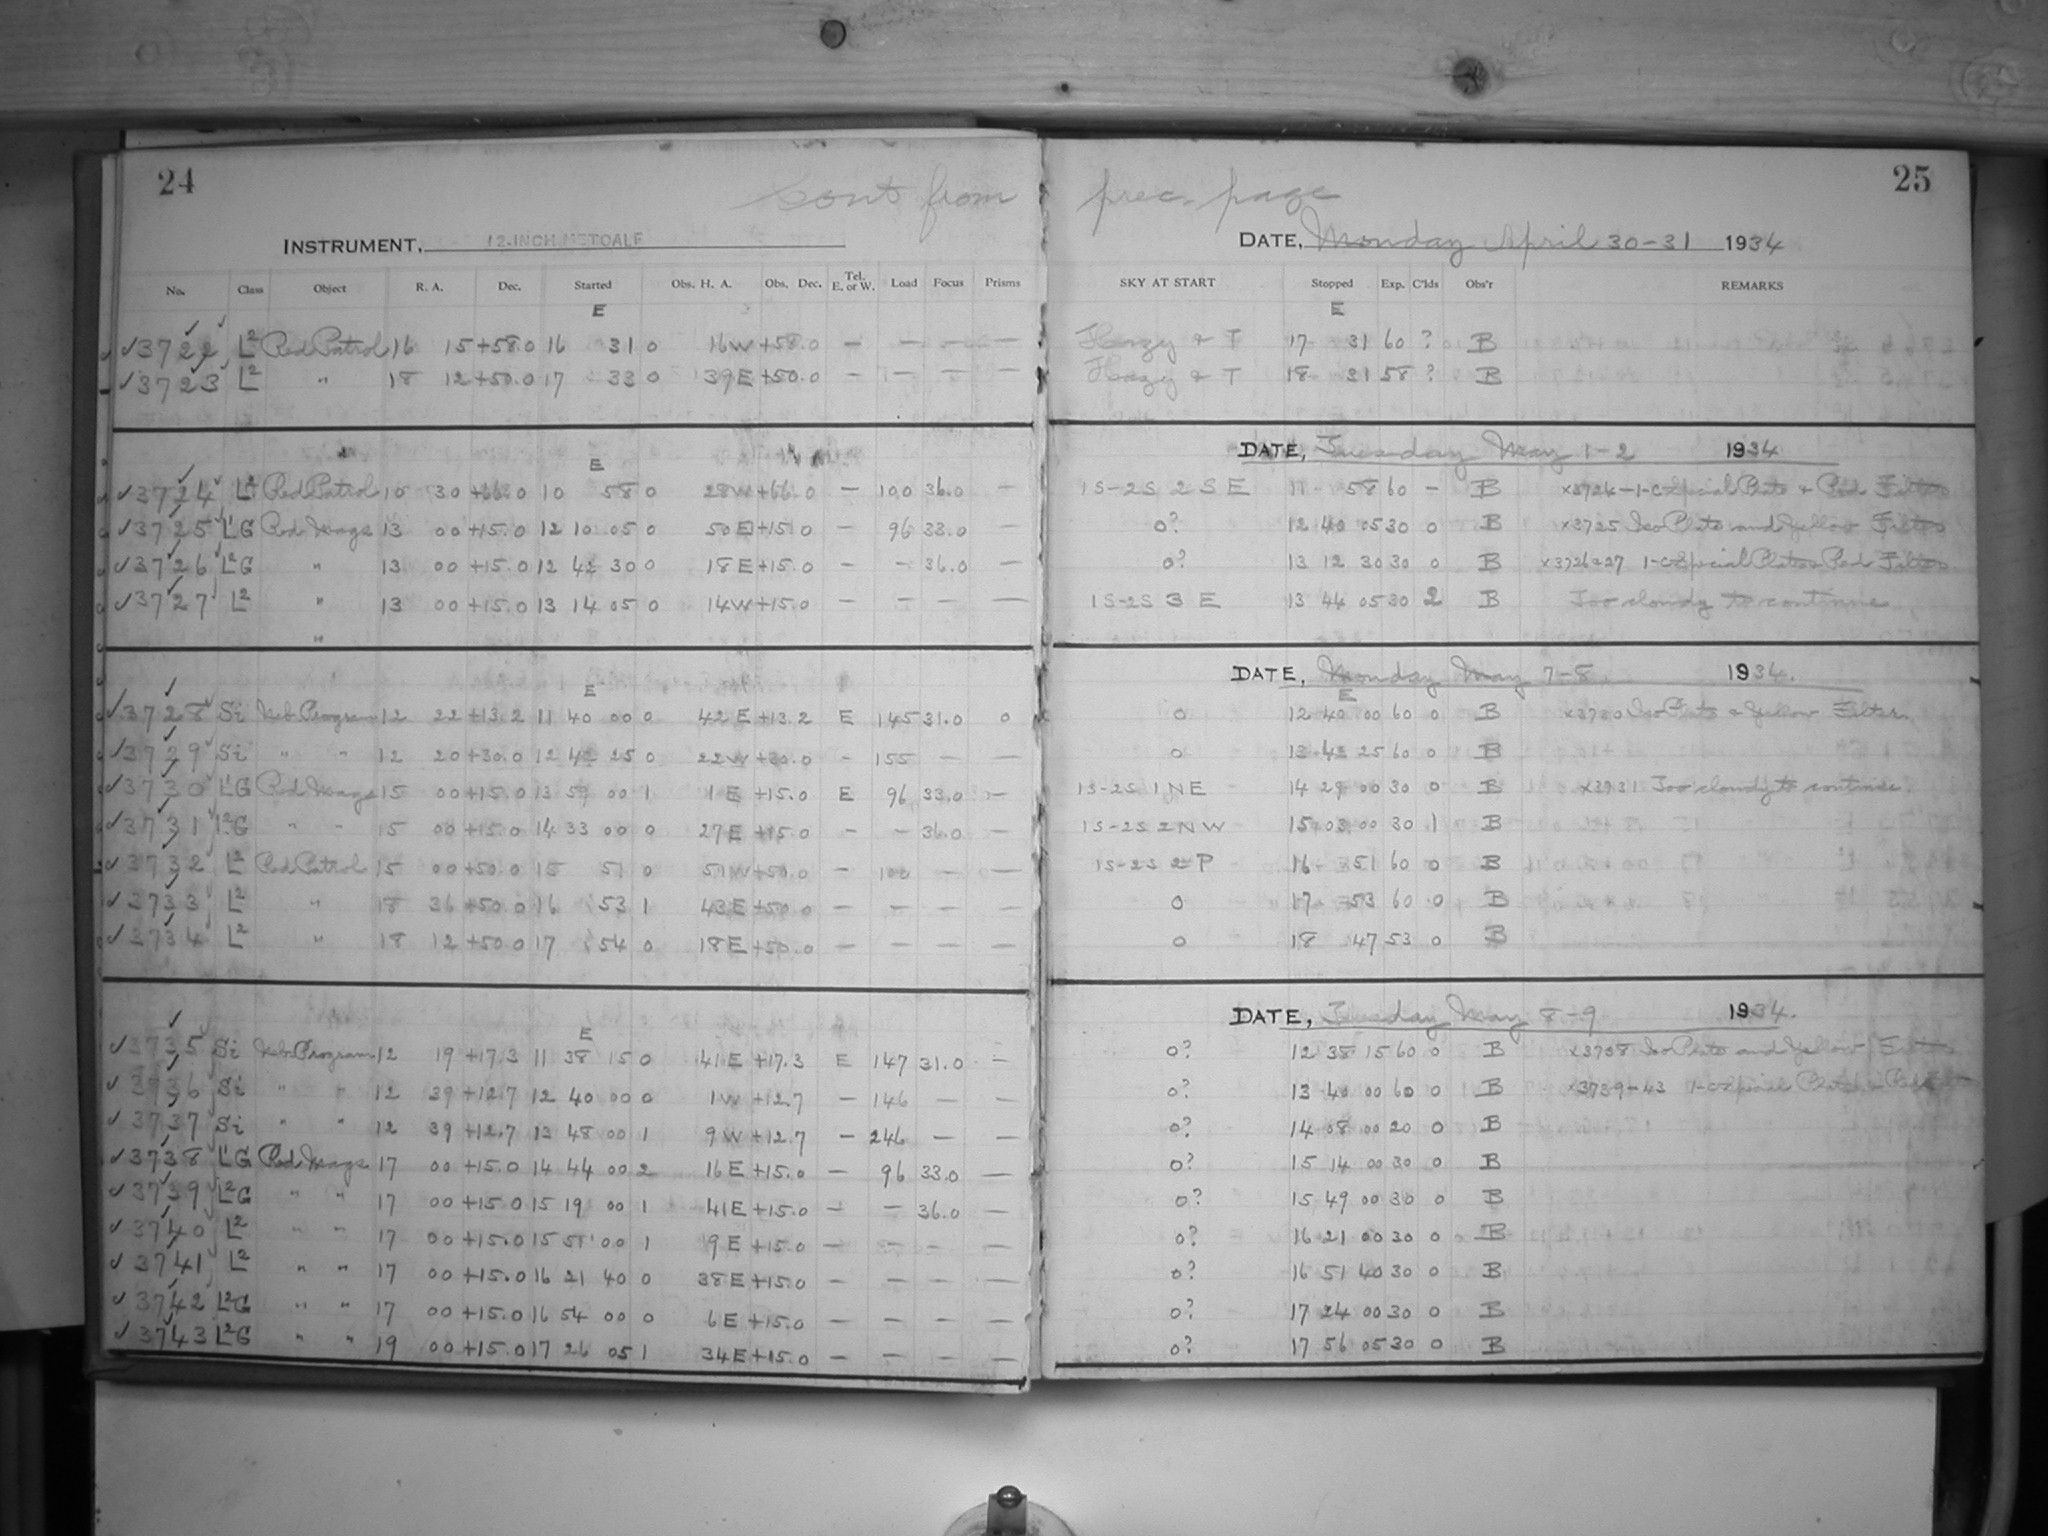 24
25
cont from prec. page
INSTRUMENT, 12-INCH METCALF DATE, Monday April 30-31 1934
No. Class Object R. A. Dec. Started Obs. H. A. Obs. Dec. Tel. E. or W. Load Focus Prisms SKY AT START Stopped Exp. C'lds Obs'r REMARKS
E E
3722 L2 Red Patrol 16 15 +58.0 16 31 0 16W +58.0 — — — — Hazy & T 17 31 60 ? B
3723 L2 " 18 12 +50.0 17 33 0 39E +50.0 — — — — Hazy & T 18 31 58 ? B
DATE, Tuesday May 1-2 1934
E
3724 L2 Red Patrol 10 30 +66.0 10 58 0 28W +66.0 — 100 36.0 — 1S-2S 2 S E 11 58 60 — B x3724-1-C Special Plate & Red Filter
3725 L'G Red Mags 13 00 +15.0 12 10 05 0 50E +15.0 — 96 33.0 — 0? 12 40 05 30 0 B x3725 Iso Plate and Yellow Filter
3726 L2G " 13 00 +15.0 12 42 30 0 18E +15.0 — — 36.0 — 0? 13 12 30 30 0 B x3726&27 1-C Special Plates Red Filter
3727 L2 " 13 00 +15.0 13 14 05 0 14W +15.0 — — — — 1S-2S 3 E 13 44 05 30 2 B Too cloudy to continue
"
DATE, Monday May 7-8 1934.
E E
3728 Si Neb. Program 12 22 +13.2 11 40 00 0 42E +13.2 E 145 31.0 0 0 12 40 00 60 0 B x3730 Iso Plate & Yellow Filter.
3729 Si " " 12 20 +30.0 12 42 25 0 22W +30.0 — 155 — — 0 13 42 25 60 0 B
3730 L'G Red Mags 15 00 +15.0 13 59 00 1 1E +15.0 E 96 33.0 — 1S-2S 1NE 14 29 00 30 0 B x3731 Too cloudy to continue.
3731 L2G " " 15 00 +15.0 14 33 00 0 27E +15.0 — — 36.0 — 1S-2S 2NW 15 03 00 30 1 B
3732 L2 Red Patrol 15 00 +50.0 15 51 0 51W +50.0 — 100 — — 1S-2S 2 P 16 51 60 0 B
3733 L2 " 18 36 +50.0 16 53 1 43E +50.0 — — — — 0 17 53 60 0 B
3734 L2 " 18 12 +50.0 17 54 0 18E +50.0 — — — — 0 18 47 53 0 B
DATE, Tuesday May 8-9 1934.
E
3735 Si Neb. Program 12 19 +17.3 11 38 15 0 41E +17.3 E 147 31.0 — 0? 12 38 15 60 0 B x3738 Iso Plate and Yellow Filter
3736 Si " " 12 39 +12.7 12 40 00 0 1W +12.7 — 146 — — 0? 13 40 00 60 0 B x3739-43 1-C Special Plates Red
3737 Si " " 12 39 +12.7 13 48 00 1 9W +12.7 — 246 — — 0? 14 08 00 20 0 B
3738 L'G Red Mags 17 00 +15.0 14 44 00 2 16E +15.0 — 96 33.0 — 0? 15 14 00 30 0 B
3739 L2G " " 17 00 +15.0 15 19 00 1 41E +15.0 — — 36.0 — 0? 15 49 00 30 0 B
3740 L2 " " 17 00 +15.0 15 51 00 1 9E +15.0 — — — — 0? 16 21 00 30 0 B
3741 L2 " " 17 00 +15.0 16 21 40 0 38E +15.0 — — — — 0? 16 51 40 30 0 B
3742 L2G " " 17 00 +15.0 16 54 00 0 6E +15.0 — — — — 0? 17 24 00 30 0 B
3743 L2G " " 19 00 +15.0 17 26 05 1 34E +15.0 — — — — 0? 17 56 05 30 0 B